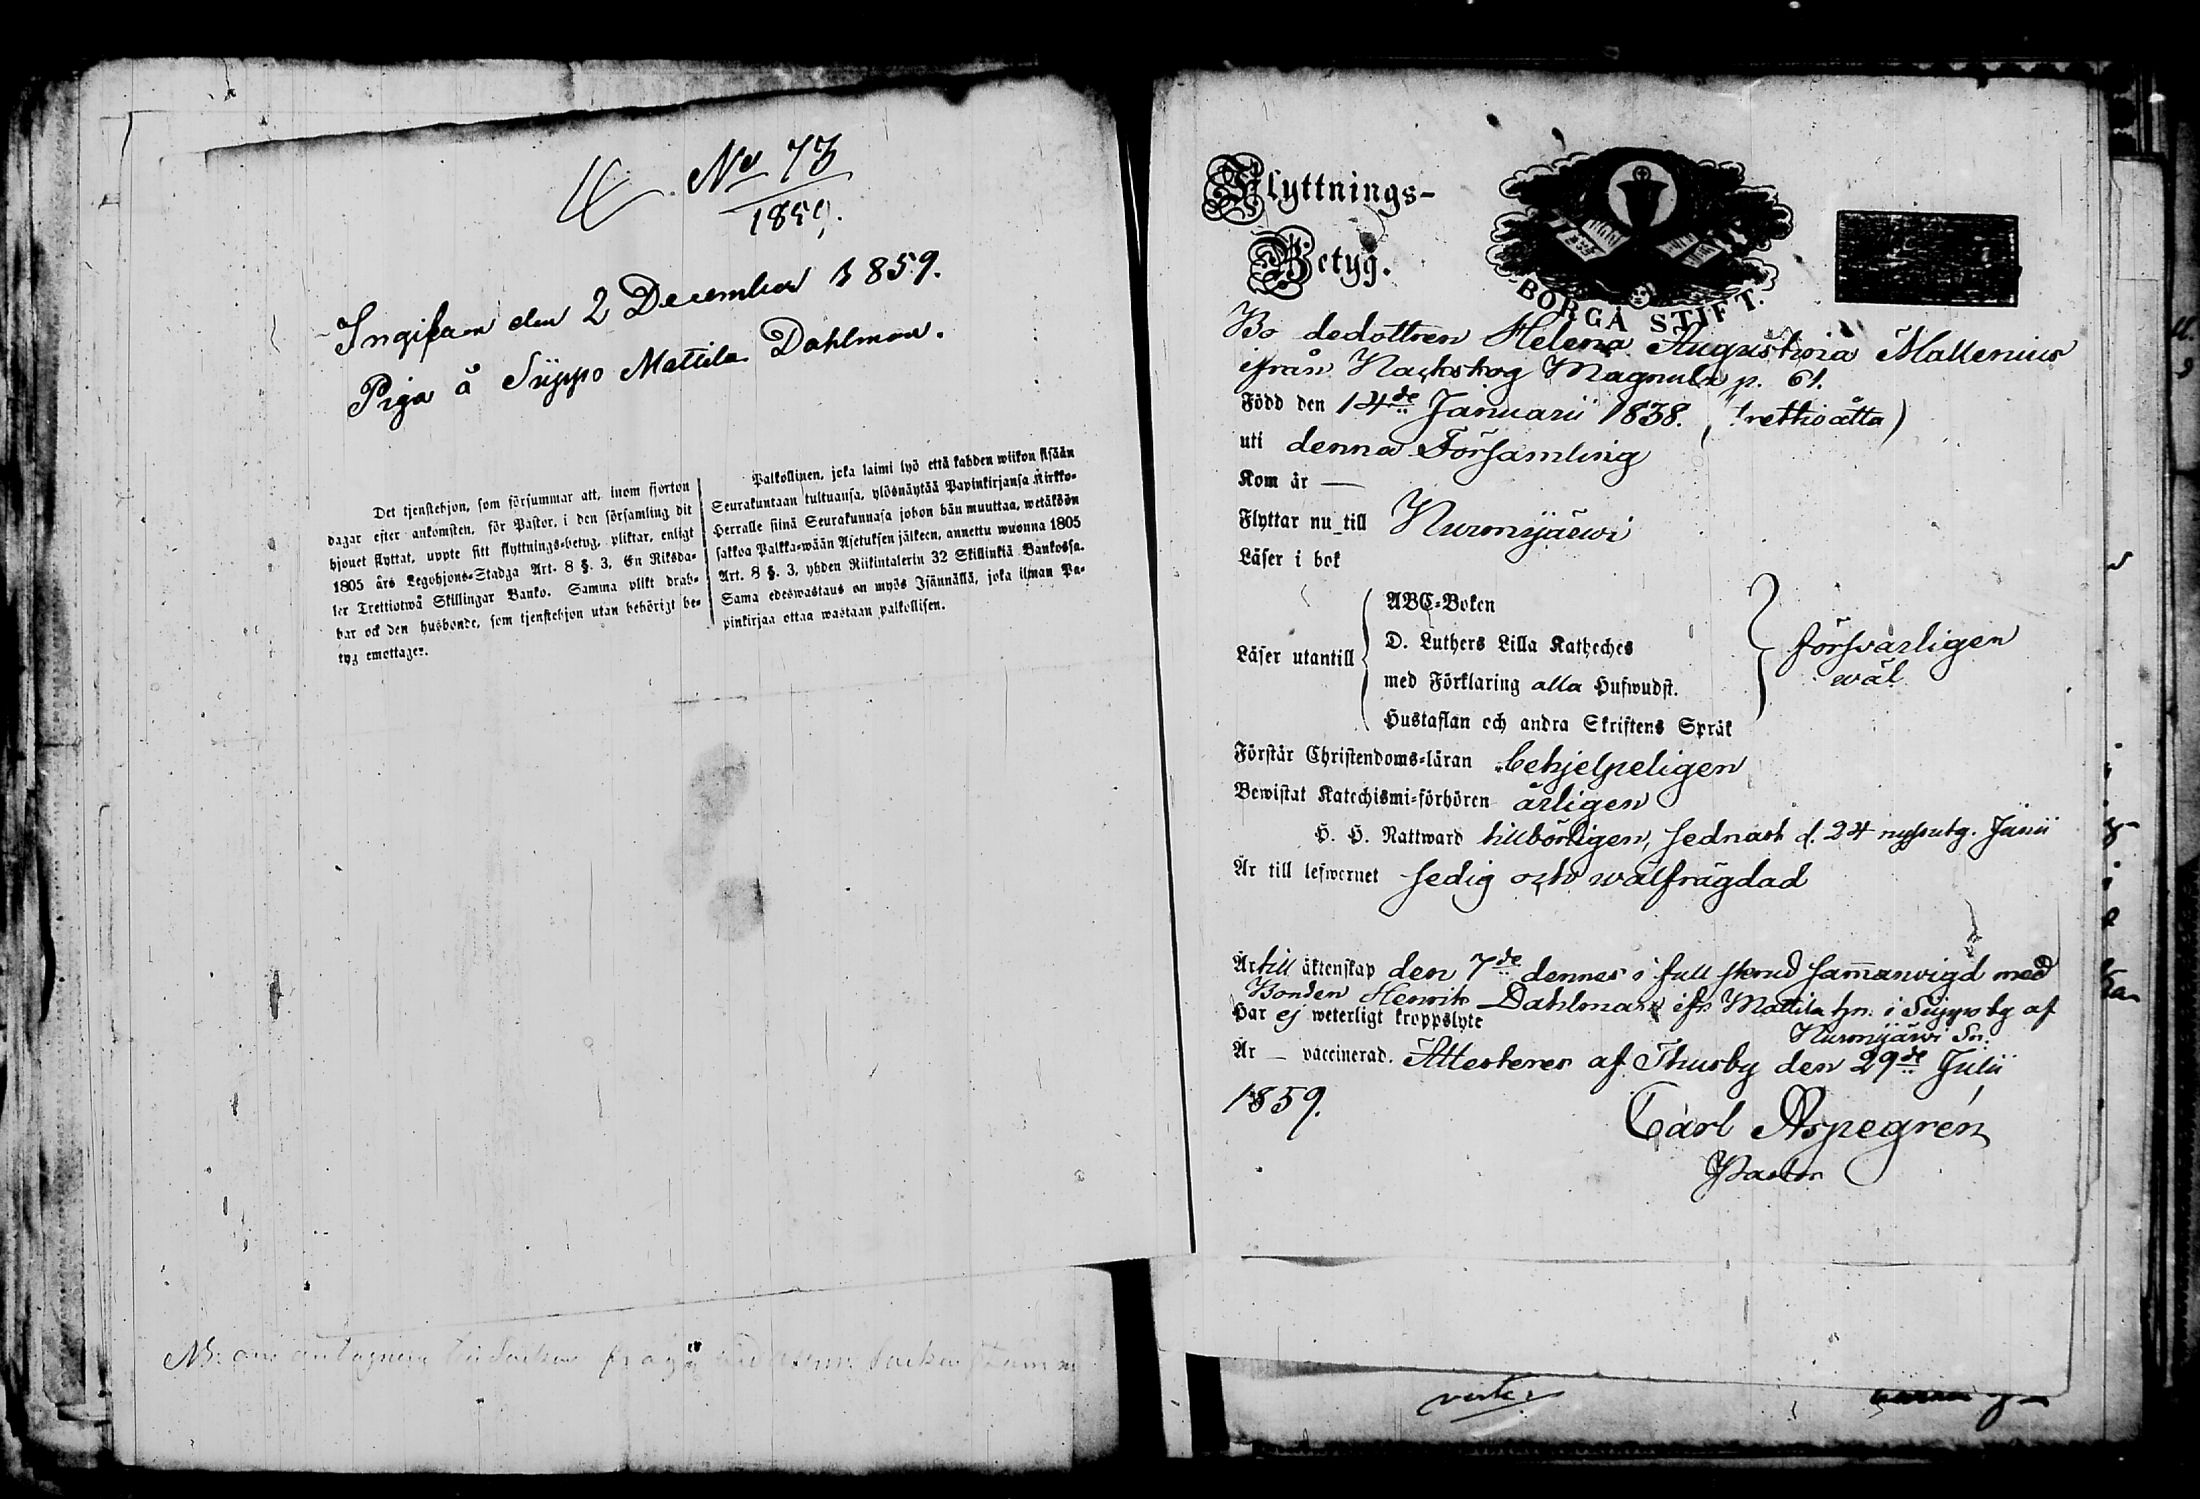 No 73
1859.
Ingifven den 2 December 1859.
Piga å Siippo Mattila Dahlman.
Det tjenstehjon, som försummar att, inom fjorton
dagar efter ankomsten, för Pastor, i den församling dit
hjonet flyttat, uppte sitt flyttnings-betyg, pliktar, enligt
1805 års Legohjons-Stadga Art. 8 §. 3, En Riksda-
ler Trettiotwå Skillingar Banko. Samma plikt drab-
bar ock den husbonde, som tjenstehjon utan behörigt be-
tyg emottager.
Palkollinen, joka laimi lyö että kahden wiikon sisään
Seurakuntaan tultuansa, ylösnäyttää Papinkirjansa Kirkko-
Herralle siinä Seurakunnasa johon hän muuttaa, wetäköön
sakkoa Palkka-wään Asetuksen jälkeen, annettu wuonna 1805
Art. 8 §. 3, yhden Riikintalerin 32 Skillinkiä Bankossa.
Sama edeswastaus on myös Isännällä, joka ilman Pa-
pinkirjaa ottaa wastaan palkollisen.
Flyttnings-
Betyg.
BORGÅ STIFT.
Bo dedottren Helena Augustina Mallenius
ifrån Nackskog Magnula p. 61.
Född den 14de Januarii 1838. (trettioåtta)
uti denna Församling
Kom år —
Flyttar nu till Nurmijärwi
Läser i bok
Läser utantill
ABC-Boken
D. Luthers Lilla Katheches
med Förklaring alla Hufwudst.
Hustaflan och andra Skriftens Språk
försvarligen
wäl
Förstår Christendoms-läran behjelpeligen
Bewistat Katechismi-förhören årligen
H. H. Nattward tillbörligen, sednast d. 24 Junii
Är till lefwernet sedig och wälfrägdad
Är till äktenskap den 7de dennes i full stånd sammanvigd med
Bonden Henrik Dahlman ifr. Mattila hn. i Siippo by af
Nurmijärwi Sn.
Har ej weterligt kroppslyte
Är — vaccinerad. Attesterer af Thusby den 29de Julii
1859.
Carl Aspegrén
Pastor